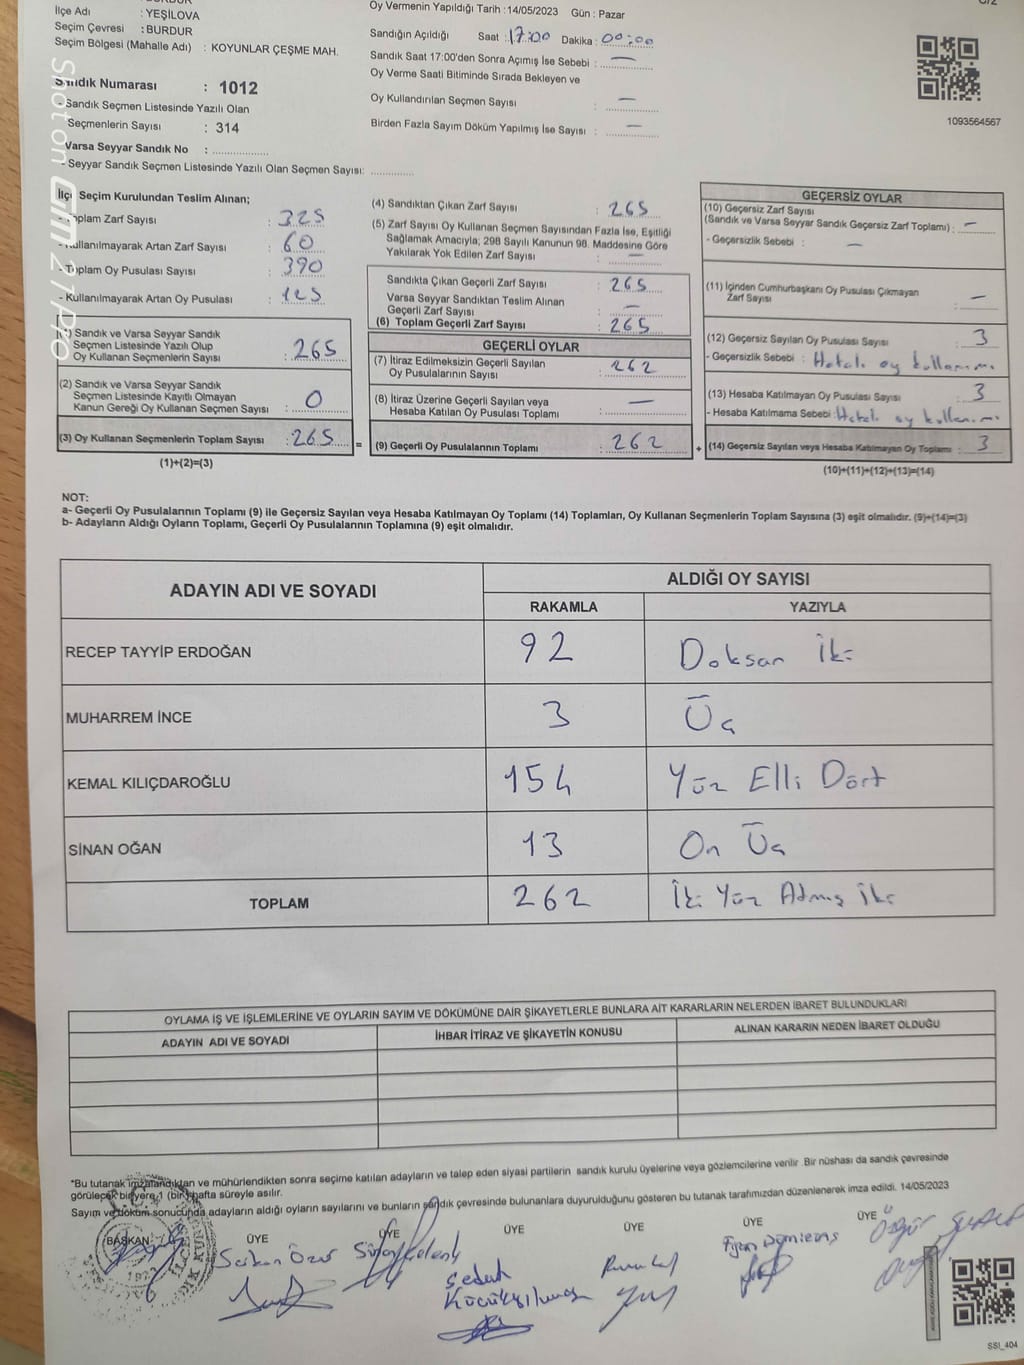 İlçe Adı : YEŞİLOVA
Seçim Çevresi : BURDUR
Seçim Bölgesi (Mahalle Adı) : KOYUNLAR ÇEŞME MAH.
Sandık Numarası : 1012
- Sandık Seçmen Listesinde Yazılı Olan
Seçmenlerin Sayısı : 314
Varsa Seyyar Sandık No : ..................
- Seyyar Sandık Seçmen Listesinde Yazılı Olan Seçmen Sayısı: .............
Oy Vermenin Yapıldığı Tarih : 14/05/2023 Gün : Pazar
Sandığın Açıldığı Saat : 17:00 Dakika : 00:00
Sandık Saat 17:00'den Sonra Açımış İse Sebebi : —
Oy Verme Saati Bitiminde Sırada Bekleyen ve
Oy Kullandırılan Seçmen Sayısı : —
Birden Fazla Sayım Döküm Yapılmış İse Sayısı : —
1093564567
Shot on GM 21 Pro
İlçe Seçim Kurulundan Teslim Alınan;
- Toplam Zarf Sayısı : 325
- Kullanılmayarak Artan Zarf Sayısı : 60
- Toplam Oy Pusulası Sayısı : 390
- Kullanılmayarak Artan Oy Pusulası : 125
(1) Sandık ve Varsa Seyyar Sandık
Seçmen Listesinde Yazılı Olup
Oy Kullanan Seçmenlerin Sayısı : 265
(2) Sandık ve Varsa Seyyar Sandık
Seçmen Listesinde Kayıtlı Olmayan
Kanun Gereği Oy Kullanan Seçmen Sayısı : 0
(3) Oy Kullanan Seçmenlerin Toplam Sayısı : 265 =
(1)+(2)=(3)
(4) Sandıktan Çıkan Zarf Sayısı : 265
(5) Zarf Sayısı Oy Kullanan Seçmen Sayısından Fazla İse, Eşitliği
Sağlamak Amacıyla; 298 Sayılı Kanunun 98. Maddesine Göre
Yakılarak Yok Edilen Zarf Sayısı : —
Sandıkta Çıkan Geçerli Zarf Sayısı : 265
Varsa Seyyar Sandıktan Teslim Alınan
Geçerli Zarf Sayısı : —
(6) Toplam Geçerli Zarf Sayısı : 265
GEÇERLİ OYLAR
(7) İtiraz Edilmeksizin Geçerli Sayılan
Oy Pusulalarının Sayısı : 262
(8) İtiraz Üzerine Geçerli Sayılan veya
Hesaba Katılan Oy Pusulası Toplamı : —
(9) Geçerli Oy Pusulalarının Toplamı : 262 +
GEÇERSİZ OYLAR
(10) Geçersiz Zarf Sayısı
(Sandık ve Varsa Seyyar Sandık Geçersiz Zarf Toplamı) : —
- Geçersizlik Sebebi : —
(11) İçinden Cumhurbaşkanı Oy Pusulası Çıkmayan
Zarf Sayısı : —
(12) Geçersiz Sayılan Oy Pusulası Sayısı : 3
- Geçersizlik Sebebi : Hatalı oy kullanımı
(13) Hesaba Katılmayan Oy Pusulası Sayısı : 3
- Hesaba Katılmama Sebebi : Hatalı oy kullanımı
(14) Geçersiz Sayılan veya Hesaba Katılmayan Oy Toplamı : 3
(10)+(11)+(12)+(13)=(14)
NOT:
a- Geçerli Oy Pusulalarının Toplamı (9) ile Geçersiz Sayılan veya Hesaba Katılmayan Oy Toplamı (14) Toplamları, Oy Kullanan Seçmenlerin Toplam Sayısına (3) eşit olmalıdır. (9)+(14)=(3)
b- Adayların Aldığı Oyların Toplamı, Geçerli Oy Pusulalarının Toplamına (9) eşit olmalıdır.
ADAYIN ADI VE SOYADI ALDIĞI OY SAYISI
RAKAMLA YAZIYLA
RECEP TAYYİP ERDOĞAN 92 Doksan İki
MUHARREM İNCE 3 Üç
KEMAL KILIÇDAROĞLU 154 Yüz Elli Dört
SİNAN OĞAN 13 On Üç
TOPLAM 262 İki Yüz Atmış İki
OYLAMA İŞ VE İŞLEMLERİNE VE OYLARIN SAYIM VE DÖKÜMÜNE DAİR ŞİKAYETLERLE BUNLARA AİT KARARLARIN NELERDEN İBARET BULUNDUKLARI
ADAYIN ADI VE SOYADI İHBAR İTİRAZ VE ŞİKAYETİN KONUSU ALINAN KARARIN NEDEN İBARET OLDUĞU
*Bu tutanak imzalandıktan ve mühürlendikten sonra seçime katılan adayların ve talep eden siyasi partilerin sandık kurulu üyelerine veya gözlemcilerine verilir. Bir nüshası da sandık çevresinde
görülecek bir yere 1 (bir) hafta süreyle asılır.
Sayım ve döküm sonucunda adayların aldığı oyların sayılarını ve bunların sandık çevresinde bulunanlara duyurulduğunu gösteren bu tutanak tarafımızdan düzenlenerek imza edildi. 14/05/2023
BAŞKAN ÜYE ÜYE ÜYE ÜYE ÜYE ÜYE
Serkan Özer
Sedat
T.C.
SSİ_404